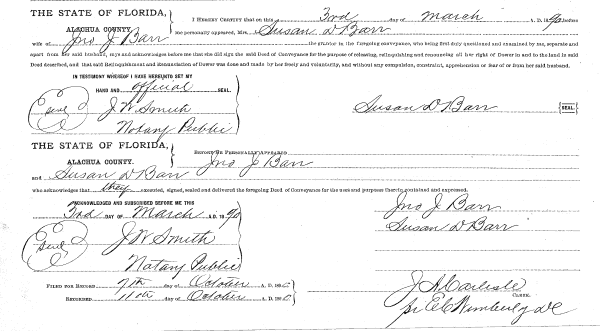 THE STATE OF FLORIDA,
ALACHUA COUNTY.
I HEREBY CERTIFY that on this 3rd day of March A. D. 1890 before
me personally appeared, Mrs. Susan D Barr
wife of Jno J Barr the grantor in the foregoing conveyance, who being first duly questioned and examined by me, separate and
apart from her said husband, says and acknowledges before me that she did sign the said Deed of Conveyance for the purpose of releasing, relinquishing and renouncing all her right of Dower in and to the land in said
Deed described, and that said Relinquishment and Renunciation of Dower was done and made by her freely and voluntarily, and without any compulsion, constraint, apprehension or fear of or from her said husband.
IN TESTIMONY WHEREOF I HAVE HEREUNTO SET MY
HAND AND official SEAL.
Seal J. W. Smith
Notary Public
Susan D Barr SEAL
THE STATE OF FLORIDA,
ALACHUA COUNTY.
BEFORE ME PERSONALLY APPEARED Jno J Barr
and Susan D Barr
who acknowledges that they executed, signed, sealed and delivered the foregoing Deed of Conveyance for the uses and purposes therein contained and expressed.
ACKNOWLEDGED AND SUBSCRIBED BEFORE ME THIS
3rd DAY OF March A. D. 1890
Seal J W Smith
Notary Public
Jno J Barr
Susan D Barr
FILED FOR RECORD 7th day of October A. D. 1890
RECORDED 11th day of October A. D. 1890
J A Carlisle
CLERK.
pr E C Wimberly DC